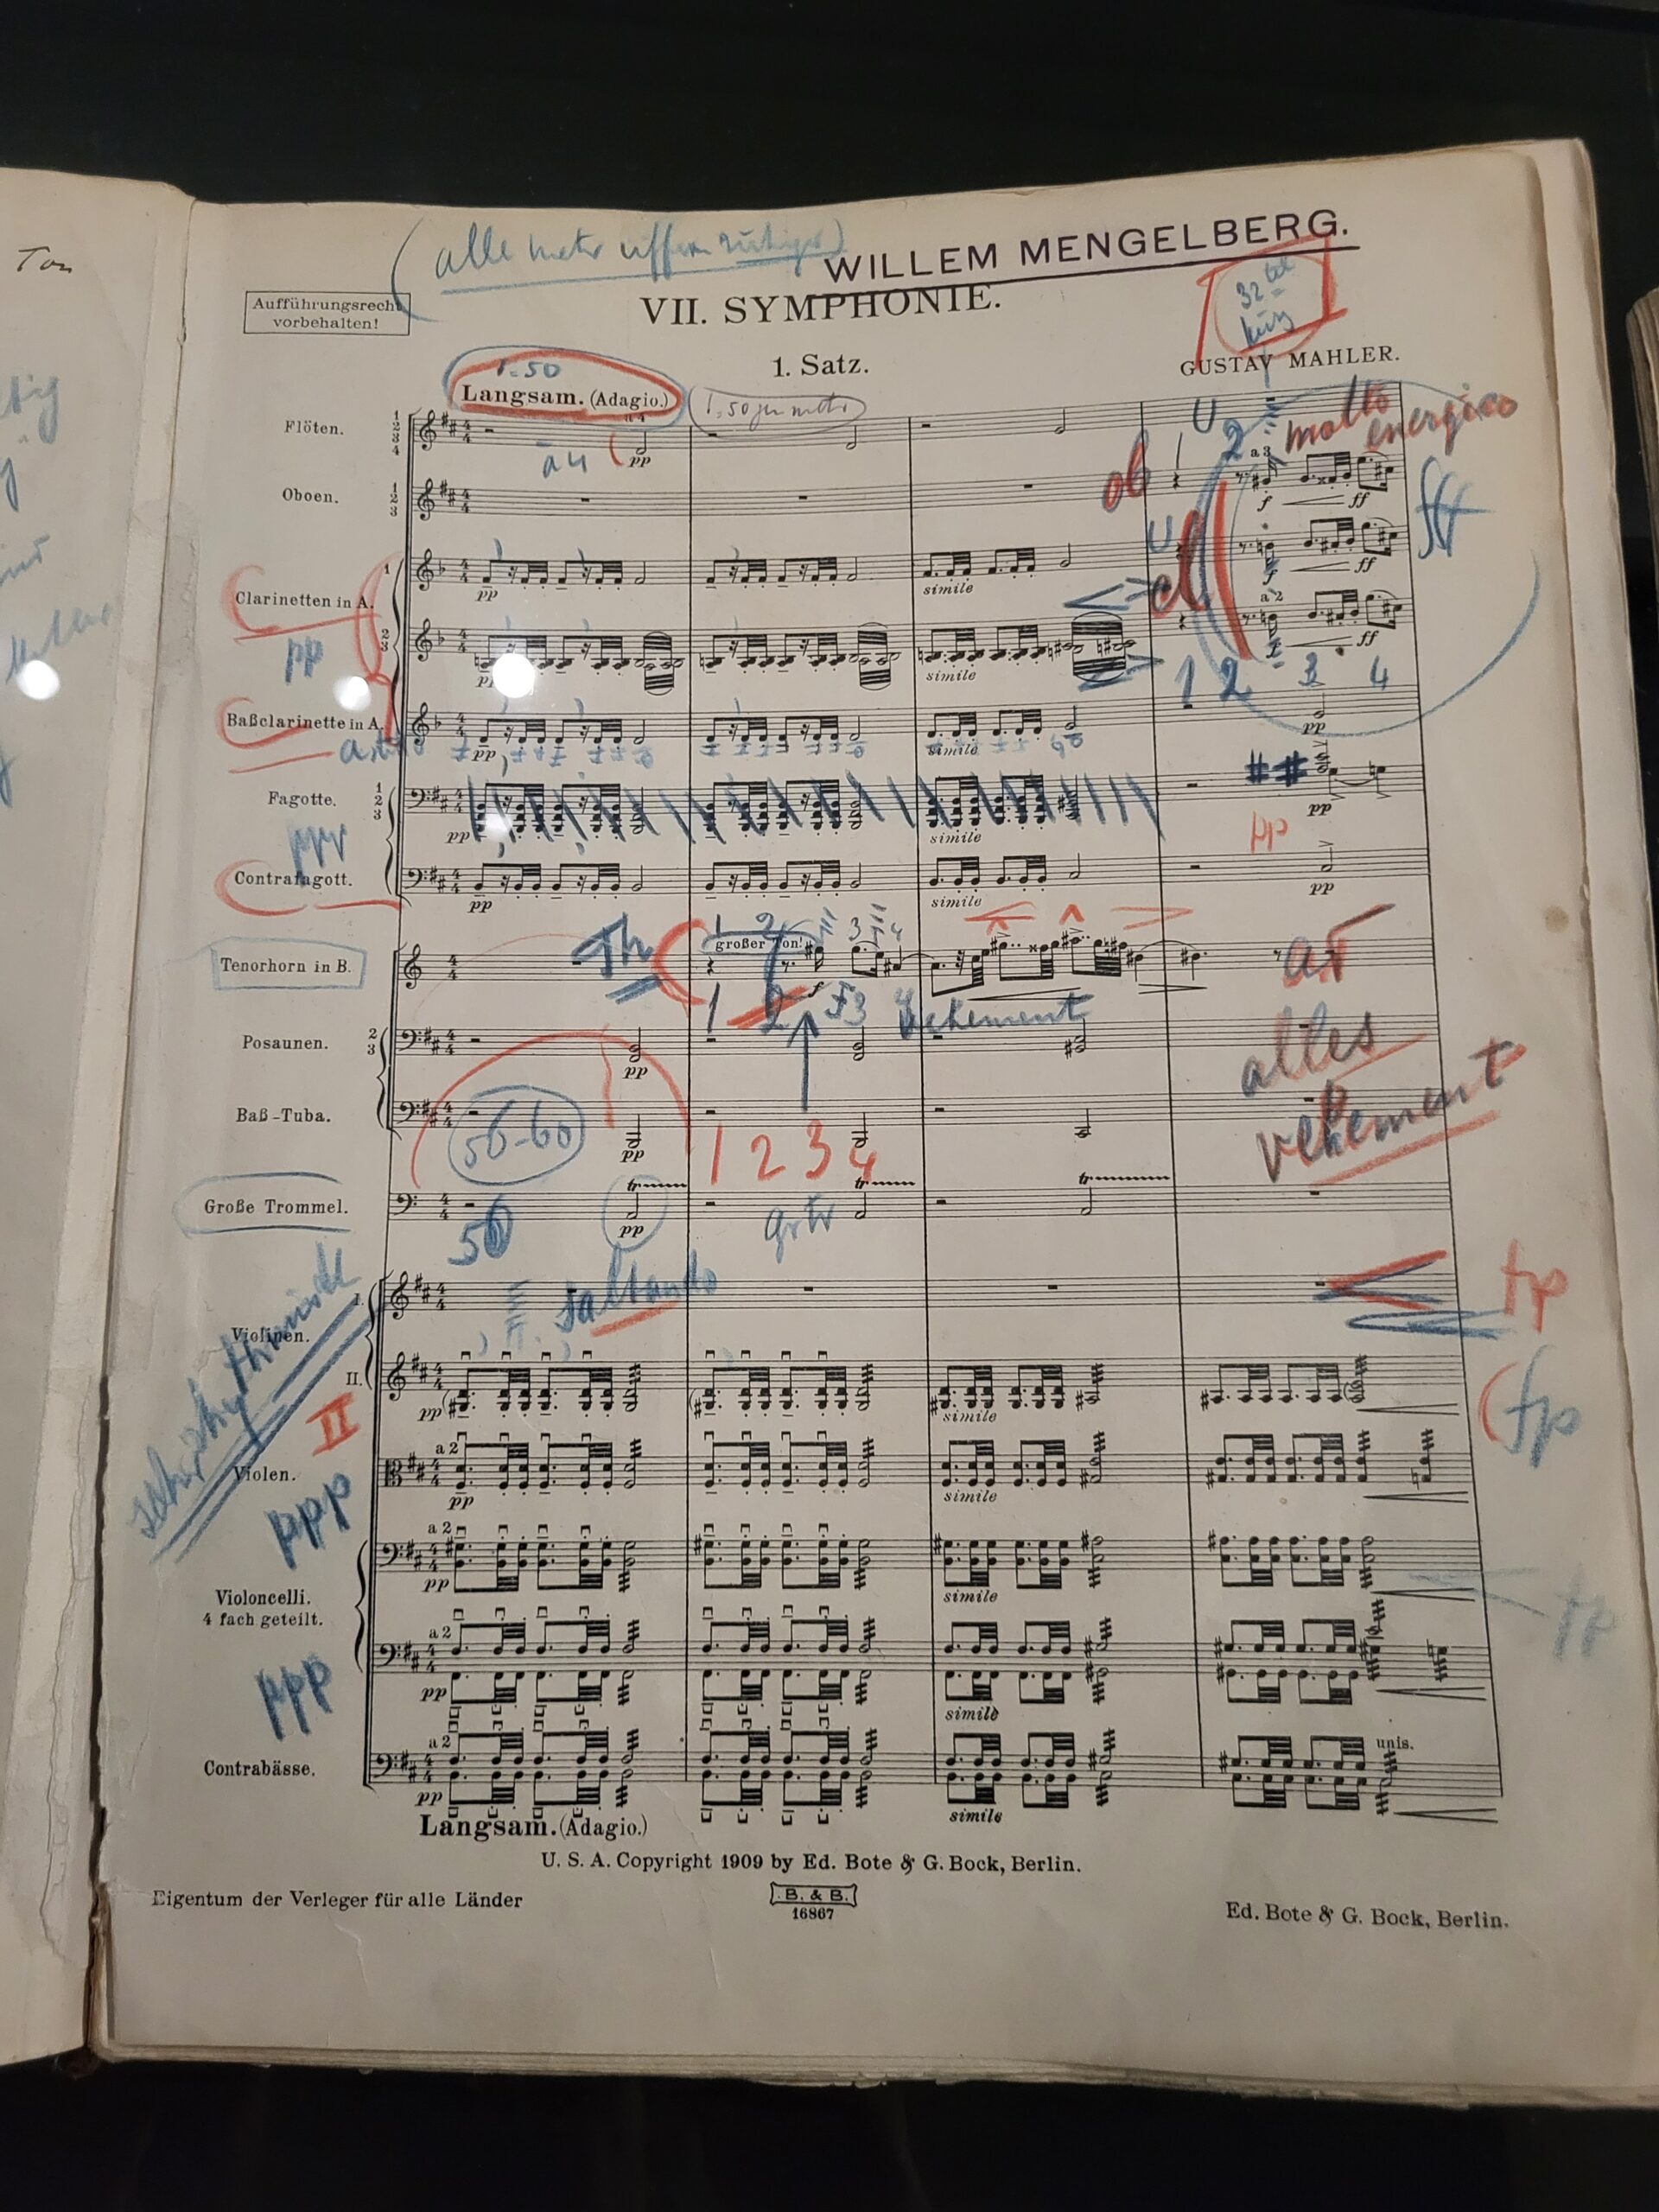 Ton
(alle mehr
WILLEM MENGELBERG.
Aufführungsrecht
vorbehalten!
VII. SYMPHONIE.
32tel
kurz
1. Satz.
GUSTAV MAHLER.
50
Langsam. (Adagio.)
50
molto
energico
Flöten. 1 2 3 4
a 4
a 4
pp
U 2
a 3
ob
Oboen. 1 2 3
f ff
fff
Clarinetten in A. 1
pp
simile
U
cl
f ff
pp
2 3
pp
simile
a 2
f ff
1 2 3 4
Baßclarinette in A.
pp
simile
pp
Fagotte. 1 2 3
ppp
pp
simile
##
pp
pp
Contrafagott.
pp
simile
pp
Tenorhorn in B.
Th
großer Ton!
1 2 3 4
f
1 2 3 4
vehement
alles
vehement
Posaunen. 2 3
pp
Baß-Tuba.
56-60
pp
1 2 3 4
Große Trommel.
50
tr
pp
tr
tr
grtr
saltando
Violinen.
I.
fp
II.
II
pp
simile
fp
Violen.
a 2
pp
simile
ppp
Violoncelli.
4 fach geteilt.
a 2
pp
simile
fp
a 2
pp
simile
ppp
Contrabässe.
a 2
pp
simile
unis.
Langsam. (Adagio.)
U. S. A. Copyright 1909 by Ed. Bote & G. Bock, Berlin.
Eigentum der Verleger für alle Länder
B. & B.
16867
Ed. Bote & G. Bock, Berlin.